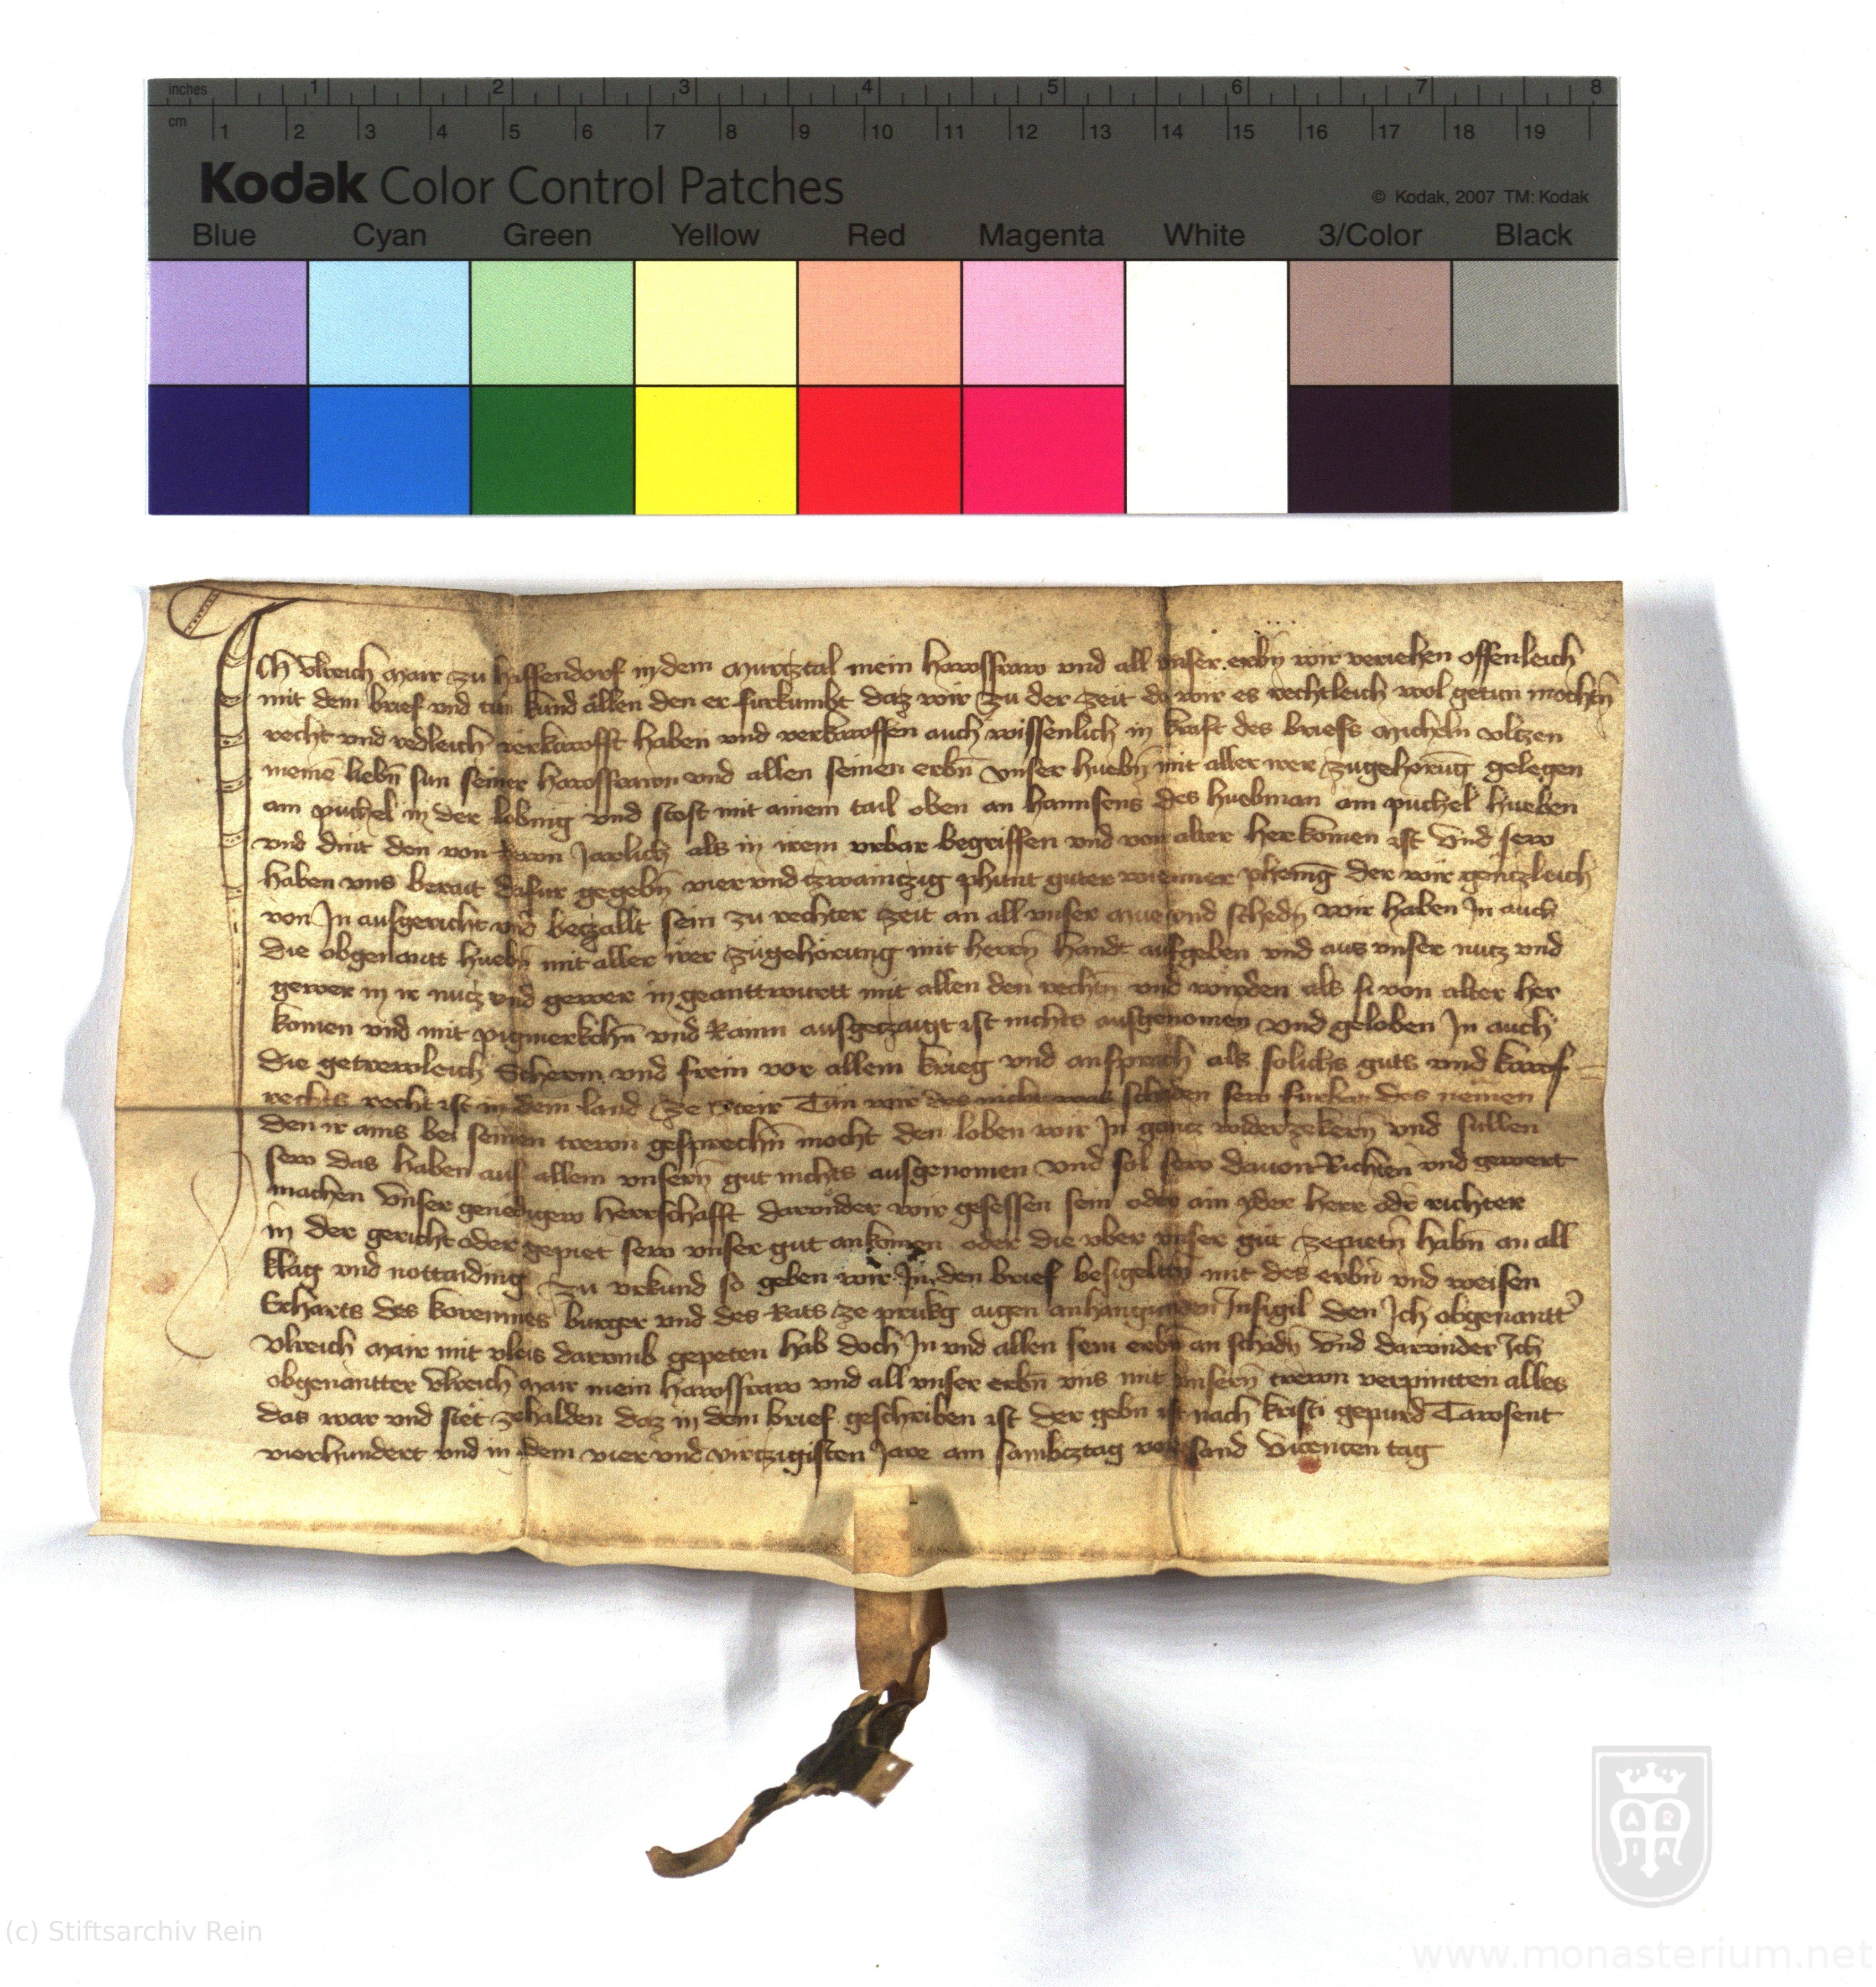 inches 1 2 3 4 5 6 7 8
cm 1 2 3 4 5 6 7 8 9 10 11 12 13 14 15 16 17 18 19
Kodak Color Control Patches
© Kodak, 2007 TM: Kodak
Blue Cyan Green Yellow Red Magenta White 3/Color Black
Ich Ulreich Mair zu Haffendorf in dem Murtztal mein hawsfraw vnd all vnser erbn wir veriehen offenleich
mit dem brief vnd tun kund allen den er furkumbt daz wir zu der zeit do wir es rechtleich wol getun mochtn
recht vnd redleich verkawfft haben vnd verkawffen auch wissenlich in kraft des briefs Micheln Vltzen
meine liebn sun seiner hawsfrawn vnd allen seinen erbn vnser huebn mit aller irer zugehorung gelegen
am puchel in der lobnig vnd stost mit ainem tail oben an hannsens des huebman am puchel hueben
vnd dint den von Jarlich als in irem vrbar begriffen vnd von alter herkomen ist Vnd sew
haben vns berait dafur gegebn vier vnd tzwaintzig phunt guter wienner phenig der wir gentzleich
von In ausgericht vnd betzallt sein zu rechter zeit an all vnser mue vnd schedn wir haben In auch
die obgenantt huebn mit aller irer zugehorung mit herrn handt aufgeben vnd aus vnser nutz vnd
gewer in ir nutz vnd gewer ingeanttwurtt mit allen den rechtn vnd wirden als si von alter her
komen vnd mit pigmerkchn vnd Rainn ausgetzaigt ist nichts ausgenomen Vnd geloben In auch
die getrewleich Scherm vnd frein vor allem krieg vnd ansprach als solichs guts vnd kawf
rechts recht ist in dem land ze Steir Tun wir des nicht was schaden sew furbas des nemen
den ir ains bei seinen trewn gesprechn mocht den loben wir In gantz widerzekern vnd sullen
sew das haben auf allem vnsern gut nichts ausgenomen Vnd sol sew dauon Richten vnd gewert
machen Vnser genedigew herrschafft darunder wir gesessen sein oder ain yder herr oder richter
in der gericht oder gepiet sew vnser gut ankomen oder die vber vnser gut zepietn habn an all
klag vnd nottaiding Zu vrkund so geben wir In den brief besigelten mit des erbn vnd weisen
Erharts des korennes burger vnd des Rats ze prukg aigen anhangunden Insigil den Ich obgenantt
Vlreich Mair mit vleis darumb gepeten hab doch In vnd allen sein erbn an schadn Vnd darunder Ich
obgenantter Vlreich Mair mein hawsfraw vnd all vnser erbn vns mit vnsern trewn verpintten alles
das war vnd stet zehalden daz in dem brief geschriben ist der gebn ist nach kristi gepurd Tawsent
vierhundert vnd in dem vier vnd virtzigisten Jare am sambtztag vor sand Vicencen tag
MARIA
(c) Stiftsarchiv Rein
www.monasterium.net